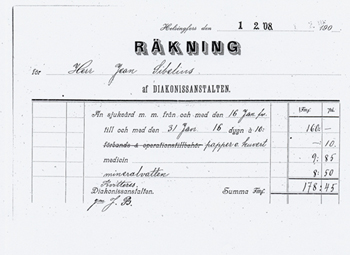 Helsingfors den 1 2 08. 190
RÄKNING
för Herr Jean Sibelius
af DIAKONISSANSTALTEN.
Fmf. pi.
An sjukvård m. m. från och med den 16 Jan
till och med den 31 Jan 16 dygn à 10: 160 —
förbands & operationstillbehör papper o. kuvert — 10.
medicin 9: 85
mineralvatten 8: 50
Kvitteras,
Diakonissanstalten. Summa Fmf. 178: 45
J. B.